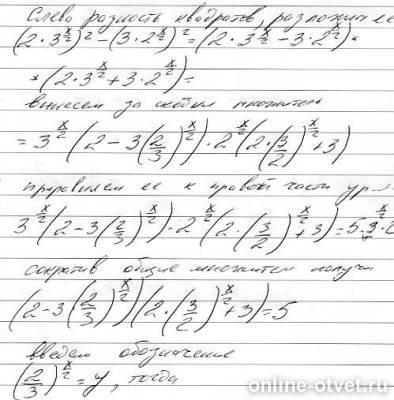 Слева разность квадратов, разложим ее
(2·3^{x/2})² − (3·2^{x/2})² = (2·3^{x/2} − 3·2^{x/2}) *
* (2·3^{x/2} + 3·2^{x/2}) =
вынесем за скобки множитель
= 3^{x/2} (2 − 3(2/3)^{x/2}) · 2^{x/2} (2·(3/2)^{x/2} + 3)
приравняем ее к правой части ур
3^{x/2} (2 − 3(2/3)^{x/2}) · 2^{x/2} (2·(3/2)^{x/2} + 3) = 5·3
сократив общие множители получ
(2 − 3(2/3)^{x/2}) (2·(3/2)^{x/2} + 3) = 5
введем обозначение
(2/3)^{x/2} = y, тогда
online-otvet.ru